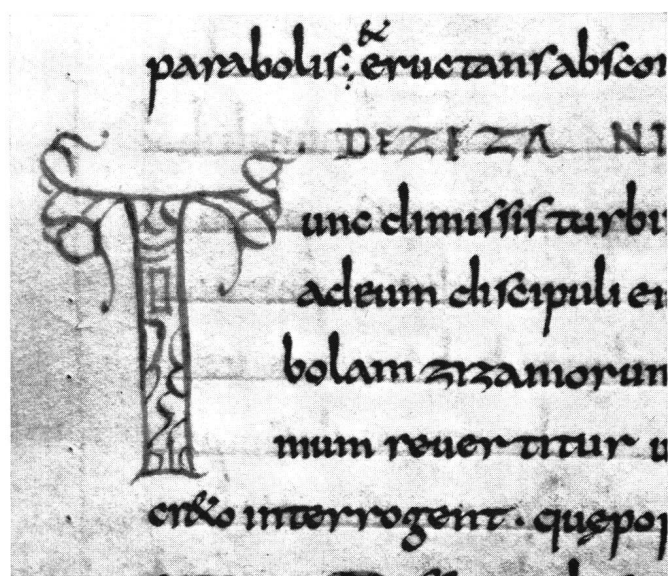 &
parabolis: eructans abscon
. DEZEZA NI
Tunc dimissis turbi
ad eum discipuli ei
bolam zizaniorum
mum reuertitur u
cr&o interrogent · quępop